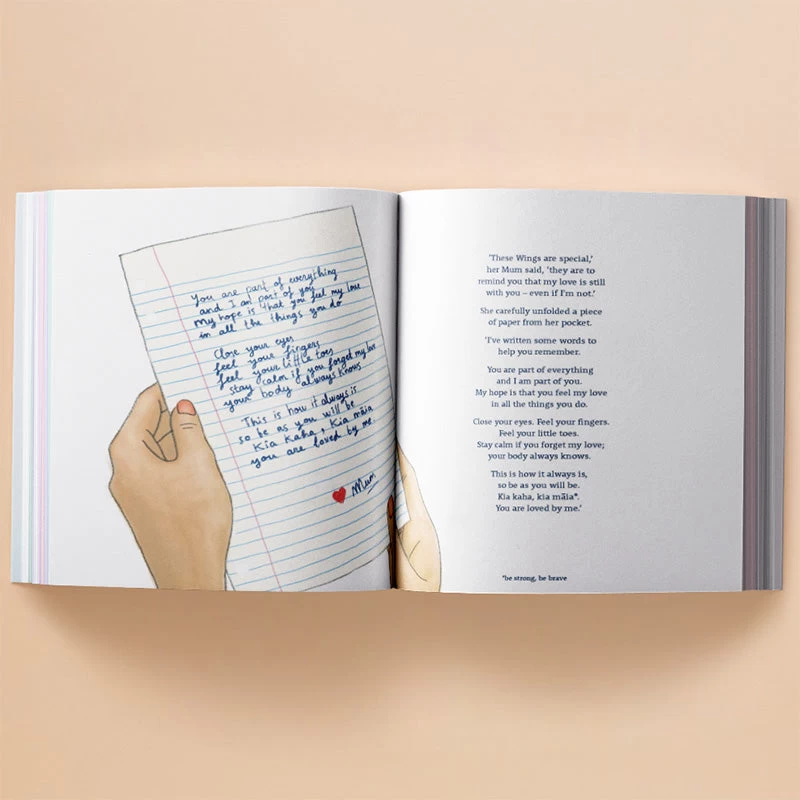 You are part of everything
and I am part of you
My hope is that you feel my love
in all the things you do
Close your eyes
feel your fingers
feel your little toes
stay calm if you forget my love
your body always knows
This is how it always is
so be as you will be
Kia Kaha, Kia māia
you are loved by me.
Mum
'These Wings are special,'
her Mum said, 'they are to
remind you that my love is still
with you – even if I'm not.'
She carefully unfolded a piece
of paper from her pocket.
'I've written some words to
help you remember.
You are part of everything
and I am part of you.
My hope is that you feel my love
in all the things you do.
Close your eyes. Feel your fingers.
Feel your little toes.
Stay calm if you forget my love;
your body always knows.
This is how it always is,
so be as you will be.
Kia kaha, kia māia*.
You are loved by me.'
*be strong, be brave